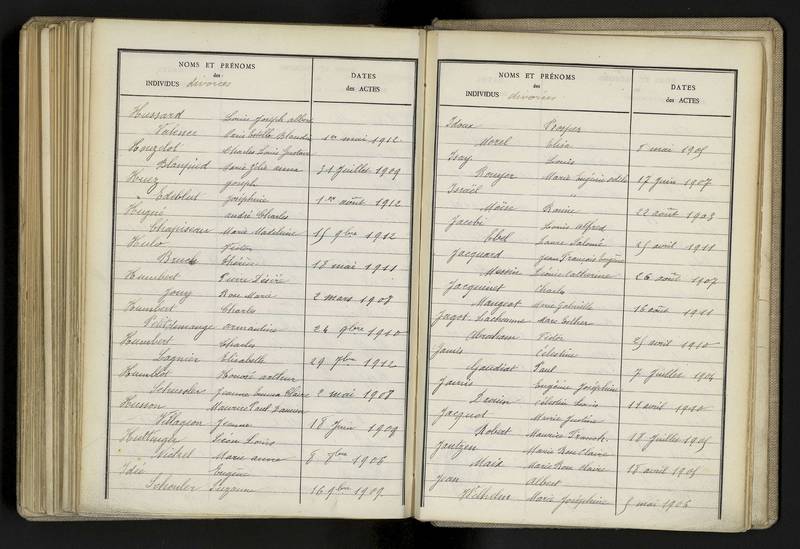 NOMS ET PRÉNOMS
des
INDIVIDUS divorcés
DATES
des ACTES
Hussard Louis Joseph albert
Valence Marie Estelle Blandine 1er mai 1912
Houzelot Charles Louis Gustave
Blanpied Marie Zélie anna 31 Juillet 1909
Huez Joseph
Edelblut Joséphine 1er août 1912
Hugué andré Charles
Chapiseau Marie Madeleine 15 9bre 1912
Hulo Victor
Bruck Thérèse 18 mai 1911
Humbert Pierre Désiré
Jouy Rose Marie 2 mars 1908
Humbert Charles
Petitdemange ermantine 24 9bre 1910
Humbert Charles
Lagnier Elisabeth 29 7bre 1912
Humblot Honoré arthur
Schussler Jeanne Emma Claire 2 mai 1908
Husson Maurice Paul
Villageon Jeanne 18 Juin 1909
Huttinger Léon Louis
Michel Marie anna 8 9bre 1906
Idée Eugène
Schouler Suzanne 16 9bre 1909
NOMS ET PRÉNOMS
des
INDIVIDUS divorcés
DATES
des ACTES
Idoux Prosper
Morel Elisa 8 mai 1905
Isay Louis
Rouyer Marie Eugénie 17 Juin 1907
Israël
Moïse Rosine 22 août 1903
Jacobi Louis alfred
Ebel Laure Salomé 25 avril 1911
Jacquard Jean François Eugène
Catherine 26 août 1907
Jacquinet Charles
Mangeot Marie Gabrielle 16 août 1911
Jagot Lachaume Marc Esther
Abraham Victor 25 avril 1910
Jamis Célestine
Gaudiat Paul 7 Juillet 1904
Jamis Eugénie Joséphine
Louis 11 avril 1910
Jacquot Marie Justine
Robert Maurice 18 Juillet 1905
Jantzen Marie Rose Claire
Maix Marie Rose Claire 18 avril 1905
Jean Albert
Marie Joséphine 5 mai 1906